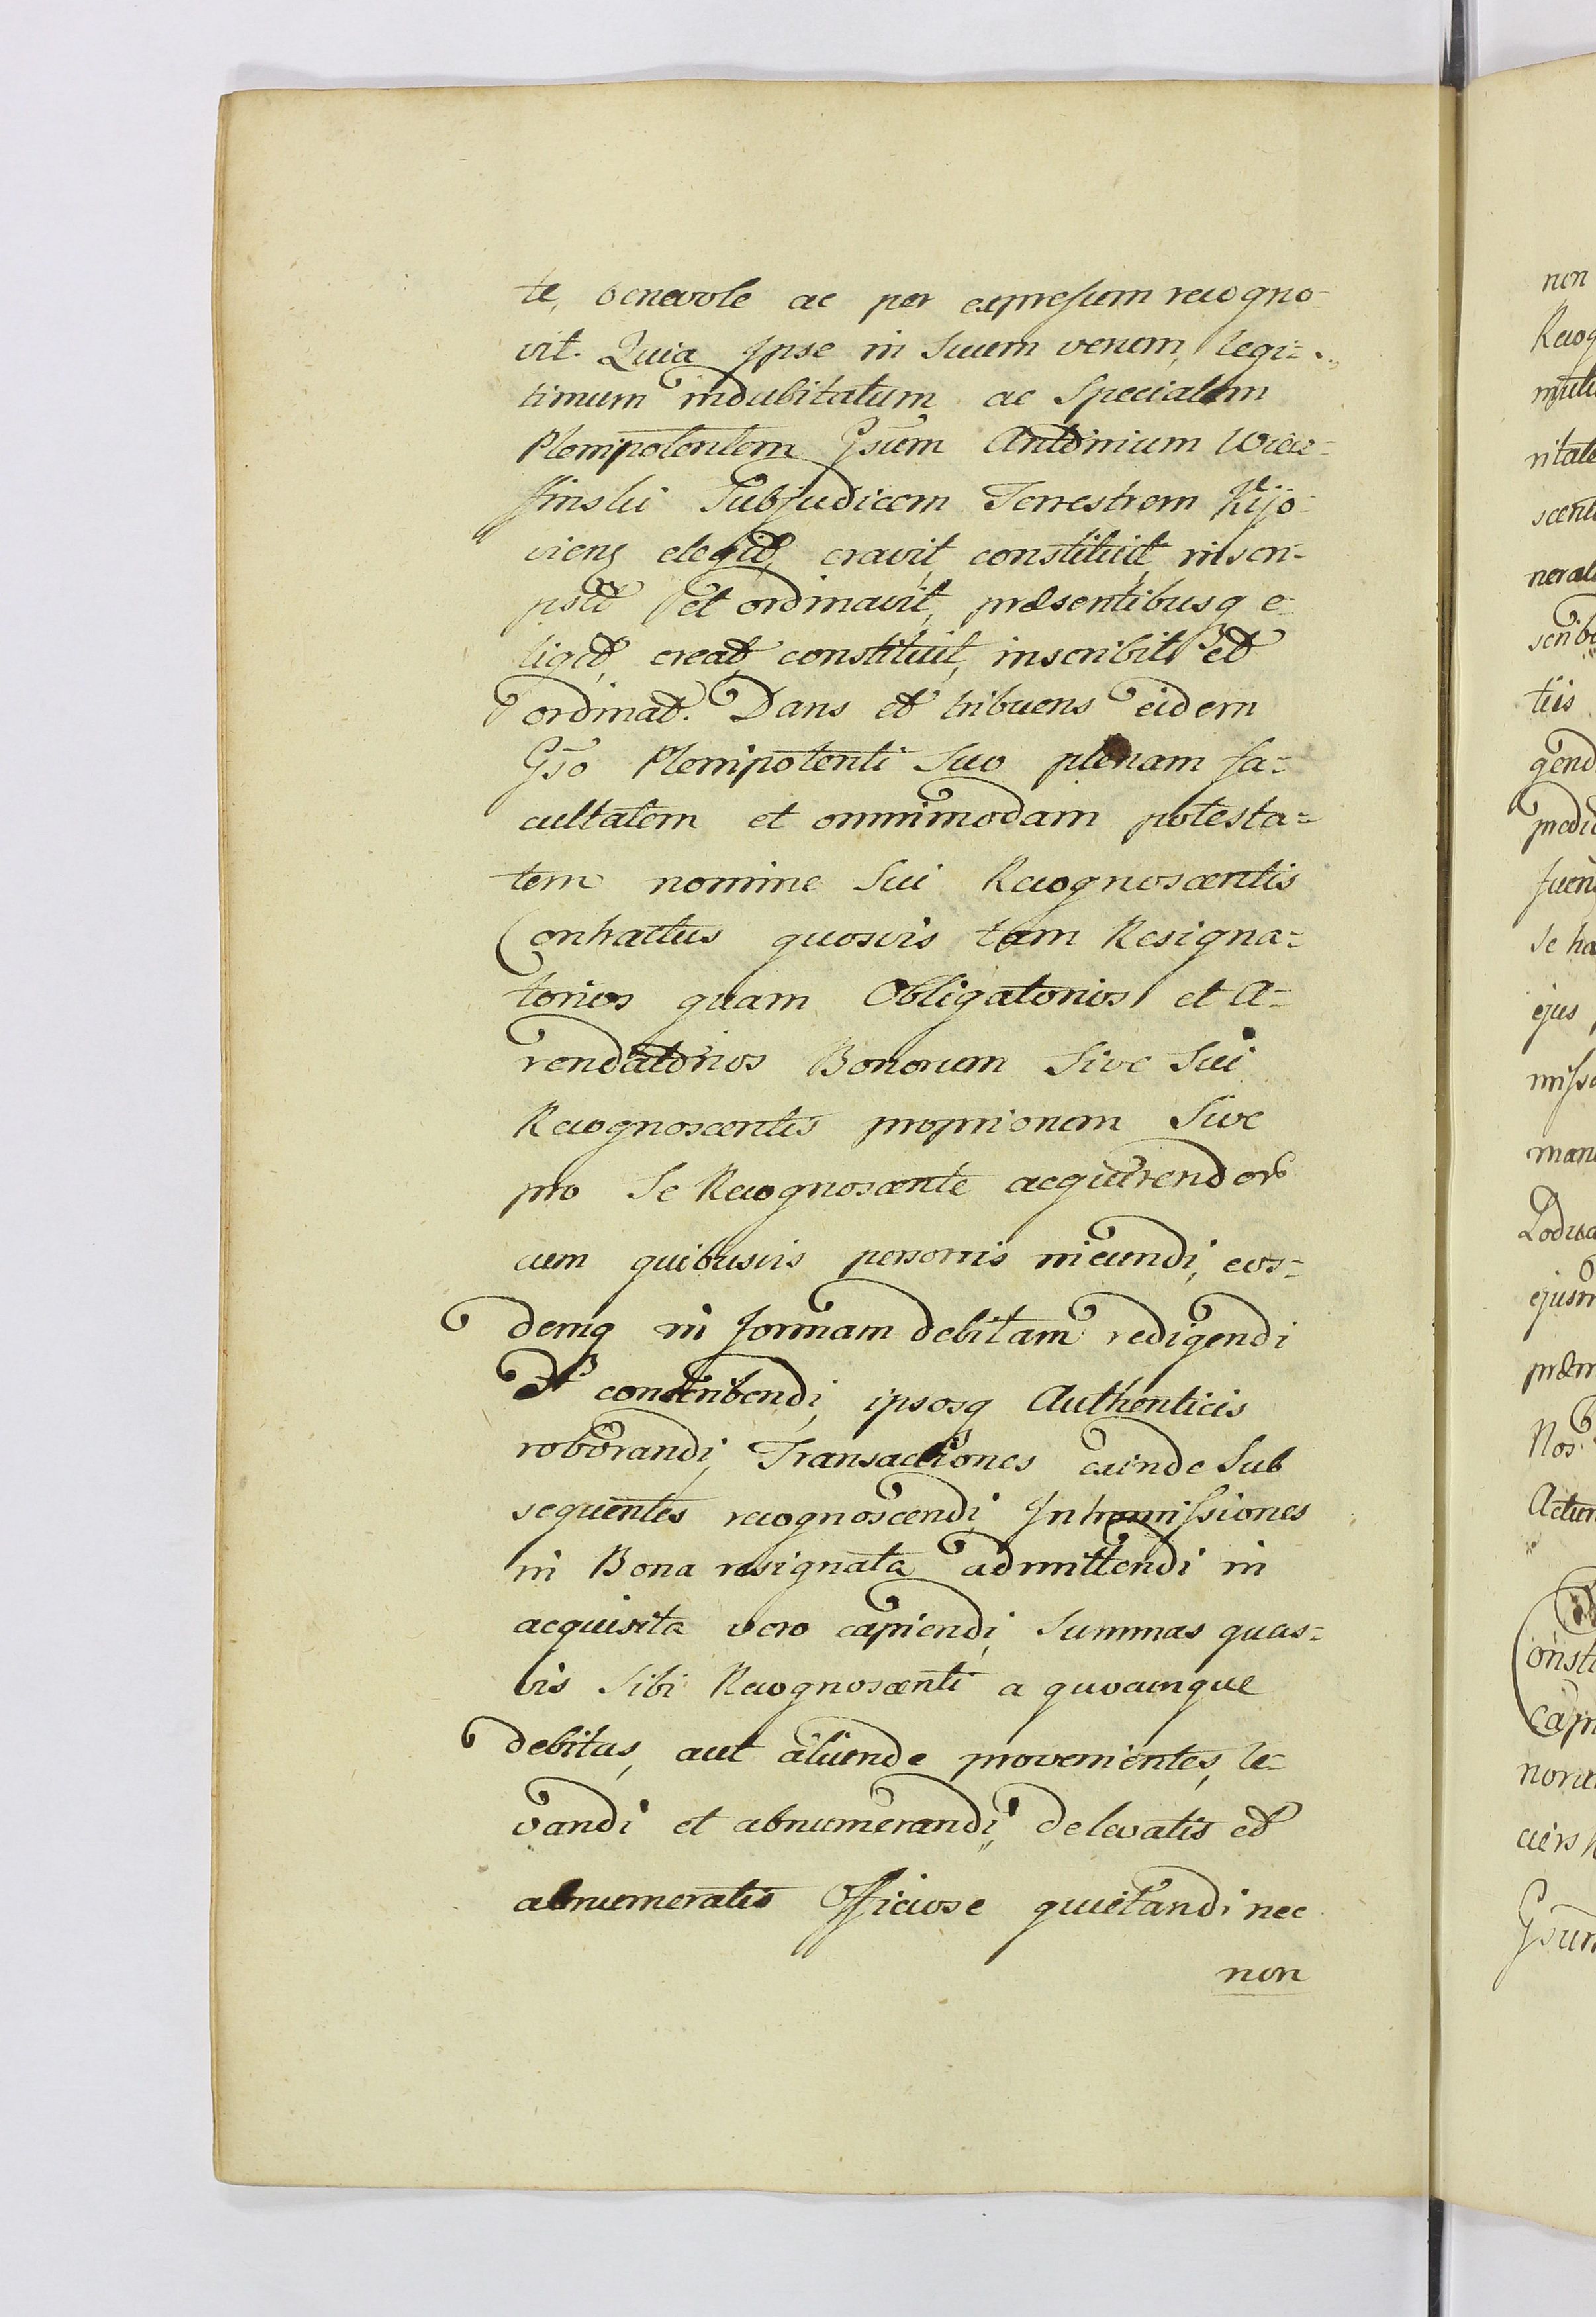 te, benevole ac per expressum recogno-
vit. Quia Ipse in Suum verum, legi=
timum indubitatum ac Specialem
Plenipotentem Gsum Antonium
Subjudicem Terrestrem Kijo-
viens elegit, creavit, constituit, inscri-
psit et ordinavit, præsentibusq e-
ligit, creat, constituit, inscribit et
ordinat. Dans et tribuens eidem
Gso Plenipotenti Suo plenam fa=
cultatem et omnimodam potesta=
tem nomine Sui Recognoscentis
Contractus quosvis tam Resigna=
torios quam Obligatorios et A=
rendatorios Bonorum Sive Sui
Recognoscentis propriorum Sive
pro Se Recognoscente acquirendor
cum quibusvis personis ineundi, eos=
demq in formam debitam redigendi
et conscribendi, ipsosq Authenticis
roborandi, Transactiones exinde Sub
sequentes recognoscendi, Intromissiones
in Bona resignata admittendi in
acquisita vero capiendi, Summas quas=
vis Sibi Recognoscenti a quocunque
debitas, aut aliunde provenientes, le=
vandi et abnumerandi, de levatis et
abnumeratis Officiose quietandi nec
non
non
Recog
scent
tiis
gend
Se ha
ejus
Nos.
Actum
Gsum